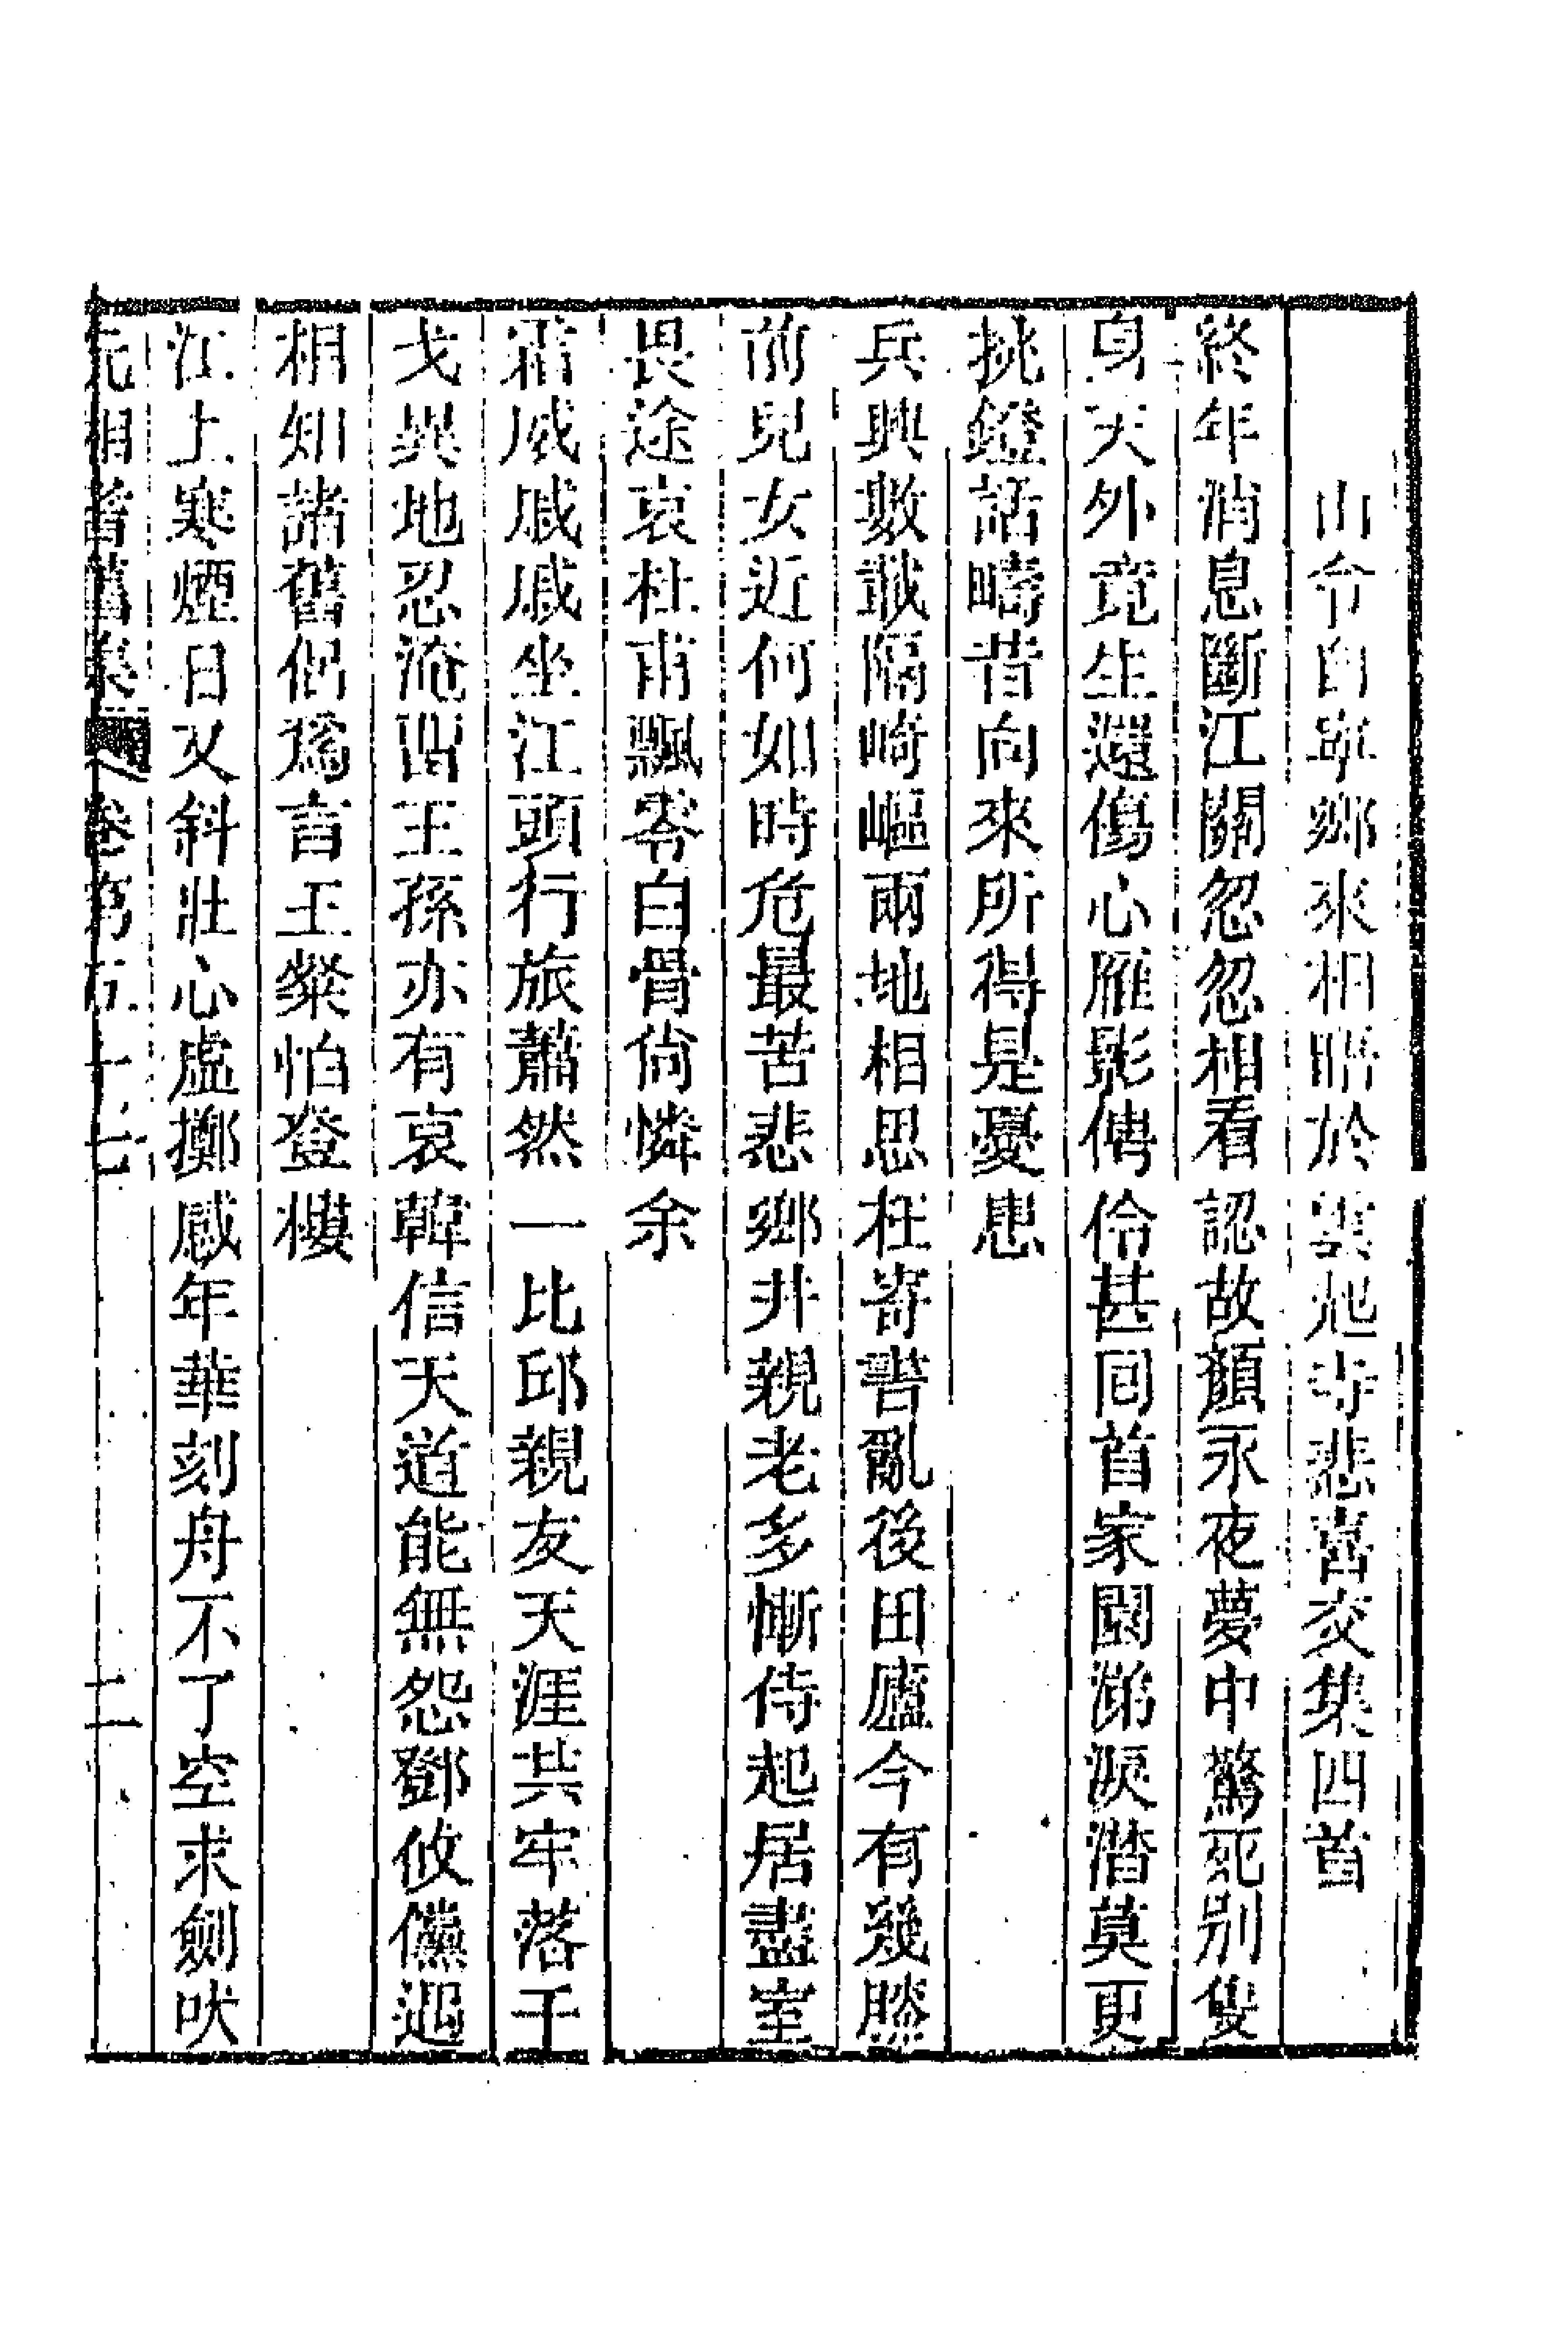 山令自寧鄉來相晤於雲起寺悲喜交集四首
終年消息斷江關忽忽相看認故顏永夜夢中驚死别隻
身天外竟生還傷心雁影俜伶甚囘首家園涕淚潛莫更
挑鐙話疇昔向來所得是憂患
兵興數載隔崎嶇兩地相思枉寄書亂後田廬今有幾膝
前兒女近何如時危最苦悲鄉井親老多慚侍起居盡室
畏途哀杜甫飄零白骨尙憐余
霜威戚戚坐江頭行旅蕭然一比邱親友天涯共牢落干
戈異地忍淹留王孫亦有哀韓信天道能無怨鄧攸儻遇
相知諸舊侶爲言王粲怕登樓
江上寒煙日又斜壯心虛擲感年華刻舟不了空求劍吠
沅湘耆舊集 卷第五十七 二